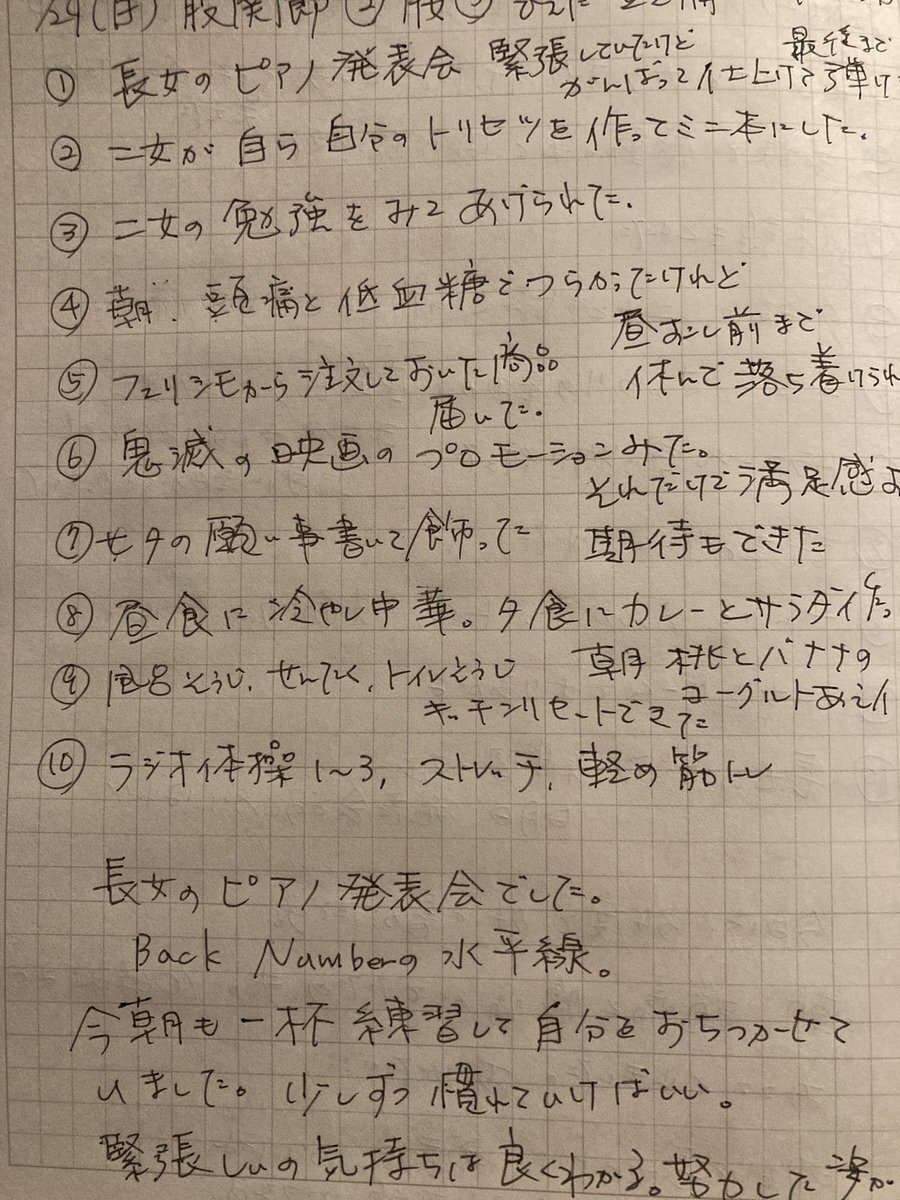 /29(日) 股関節
① 長女のピアノ発表会 緊張していたけど 最後まで
がんばって仕上げて弾け
② 二女が自ら自分のトリセツを作ってミニ本にした。
③ 二女の勉強をみてあげられた。
④ 朝、頭痛と低血糖でつらかったけれど
昼すこし前まで
休んで落ち着けられ
⑤ フェリシモから注文しておいた商品
届いた。
⑥ 鬼滅の映画のプロモーションみた。
それだけで満足感
期待もできた
⑦ 七夕の願い事書いて飾った
⑧ 昼食に冷やし中華。夕食にカレーとサラダ作っ
朝 桃とバナナの
ヨーグルトあえ
⑨ 風呂そうじ、せんたく、トイレそうじ
キッチンリセットできた
⑩ ラジオ体操1〜3、ストレッチ、軽め筋トレ
長女のピアノ発表会でした。
Back Numberの水平線。
今朝も一杯練習して自分をおちつかせて
いました。少しずつ慣れていけばいい。
緊張しいの気持ちは良くわかる。努力した姿が